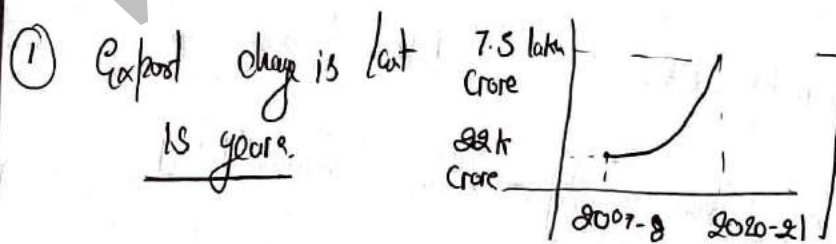 ① Export change is last
15 years.
7.5 lakh
Crore
22k
Crore
2007-8 2020-21